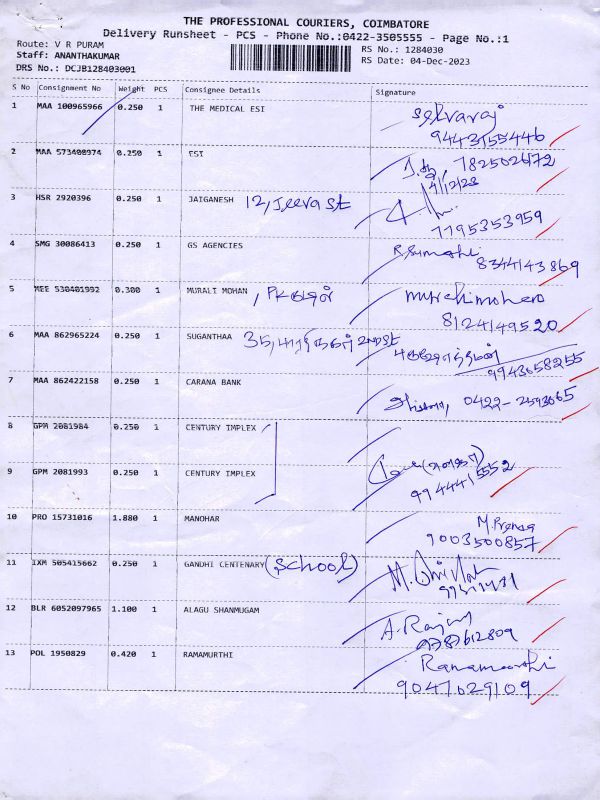 THE PROFESSIONAL COURIERS, COIMBATORE
Delivery Runsheet - PCS - Phone No.:0422-3505555 - Page No.:1
Route: V R PURAM
RS No.: 1284030
Staff: ANANTHAKUMAR
RS Date: 04-Dec-2023
DRS No.: DCJB128403001
S No Consignment No Weight PCS Consignee Details Signature
1 MAA 100965966 0.250 1 THE MEDICAL ESI Selvaraj
9443155446
2 MAA 573400974 0.250 1 ESI 7825026172
4/12/23
3 HSR 2920396 0.250 1 JAIGANESH 12, Jeeva st
7795353959
4 SMG 30086413 0.250 1 GS AGENCIES
8344143869
5 MEE 530401992 0.300 1 MURALI MOHAN , PK புதூர்
8124149520
6 MAA 862965224 0.250 1 SUGANTHAA 35, பாரதிநகர் 2nd st
9943658255
7 MAA 862422158 0.250 1 CARANA BANK 0422-2593065
8 GPM 2081984 0.250 1 CENTURY IMPLEX
9 GPM 2081993 0.250 1 CENTURY IMPLEX
9944415552
10 PRO 15731016 1.880 1 MANOHAR
9003500857
11 IXM 505415662 0.250 1 GANDHI CENTENARY (School)
12 BLR 6052097965 1.100 1 ALAGU SHANMUGAM
9787612809
13 POL 1950829 0.420 1 RAMAMURTHI Ramamoorthi
9047029109